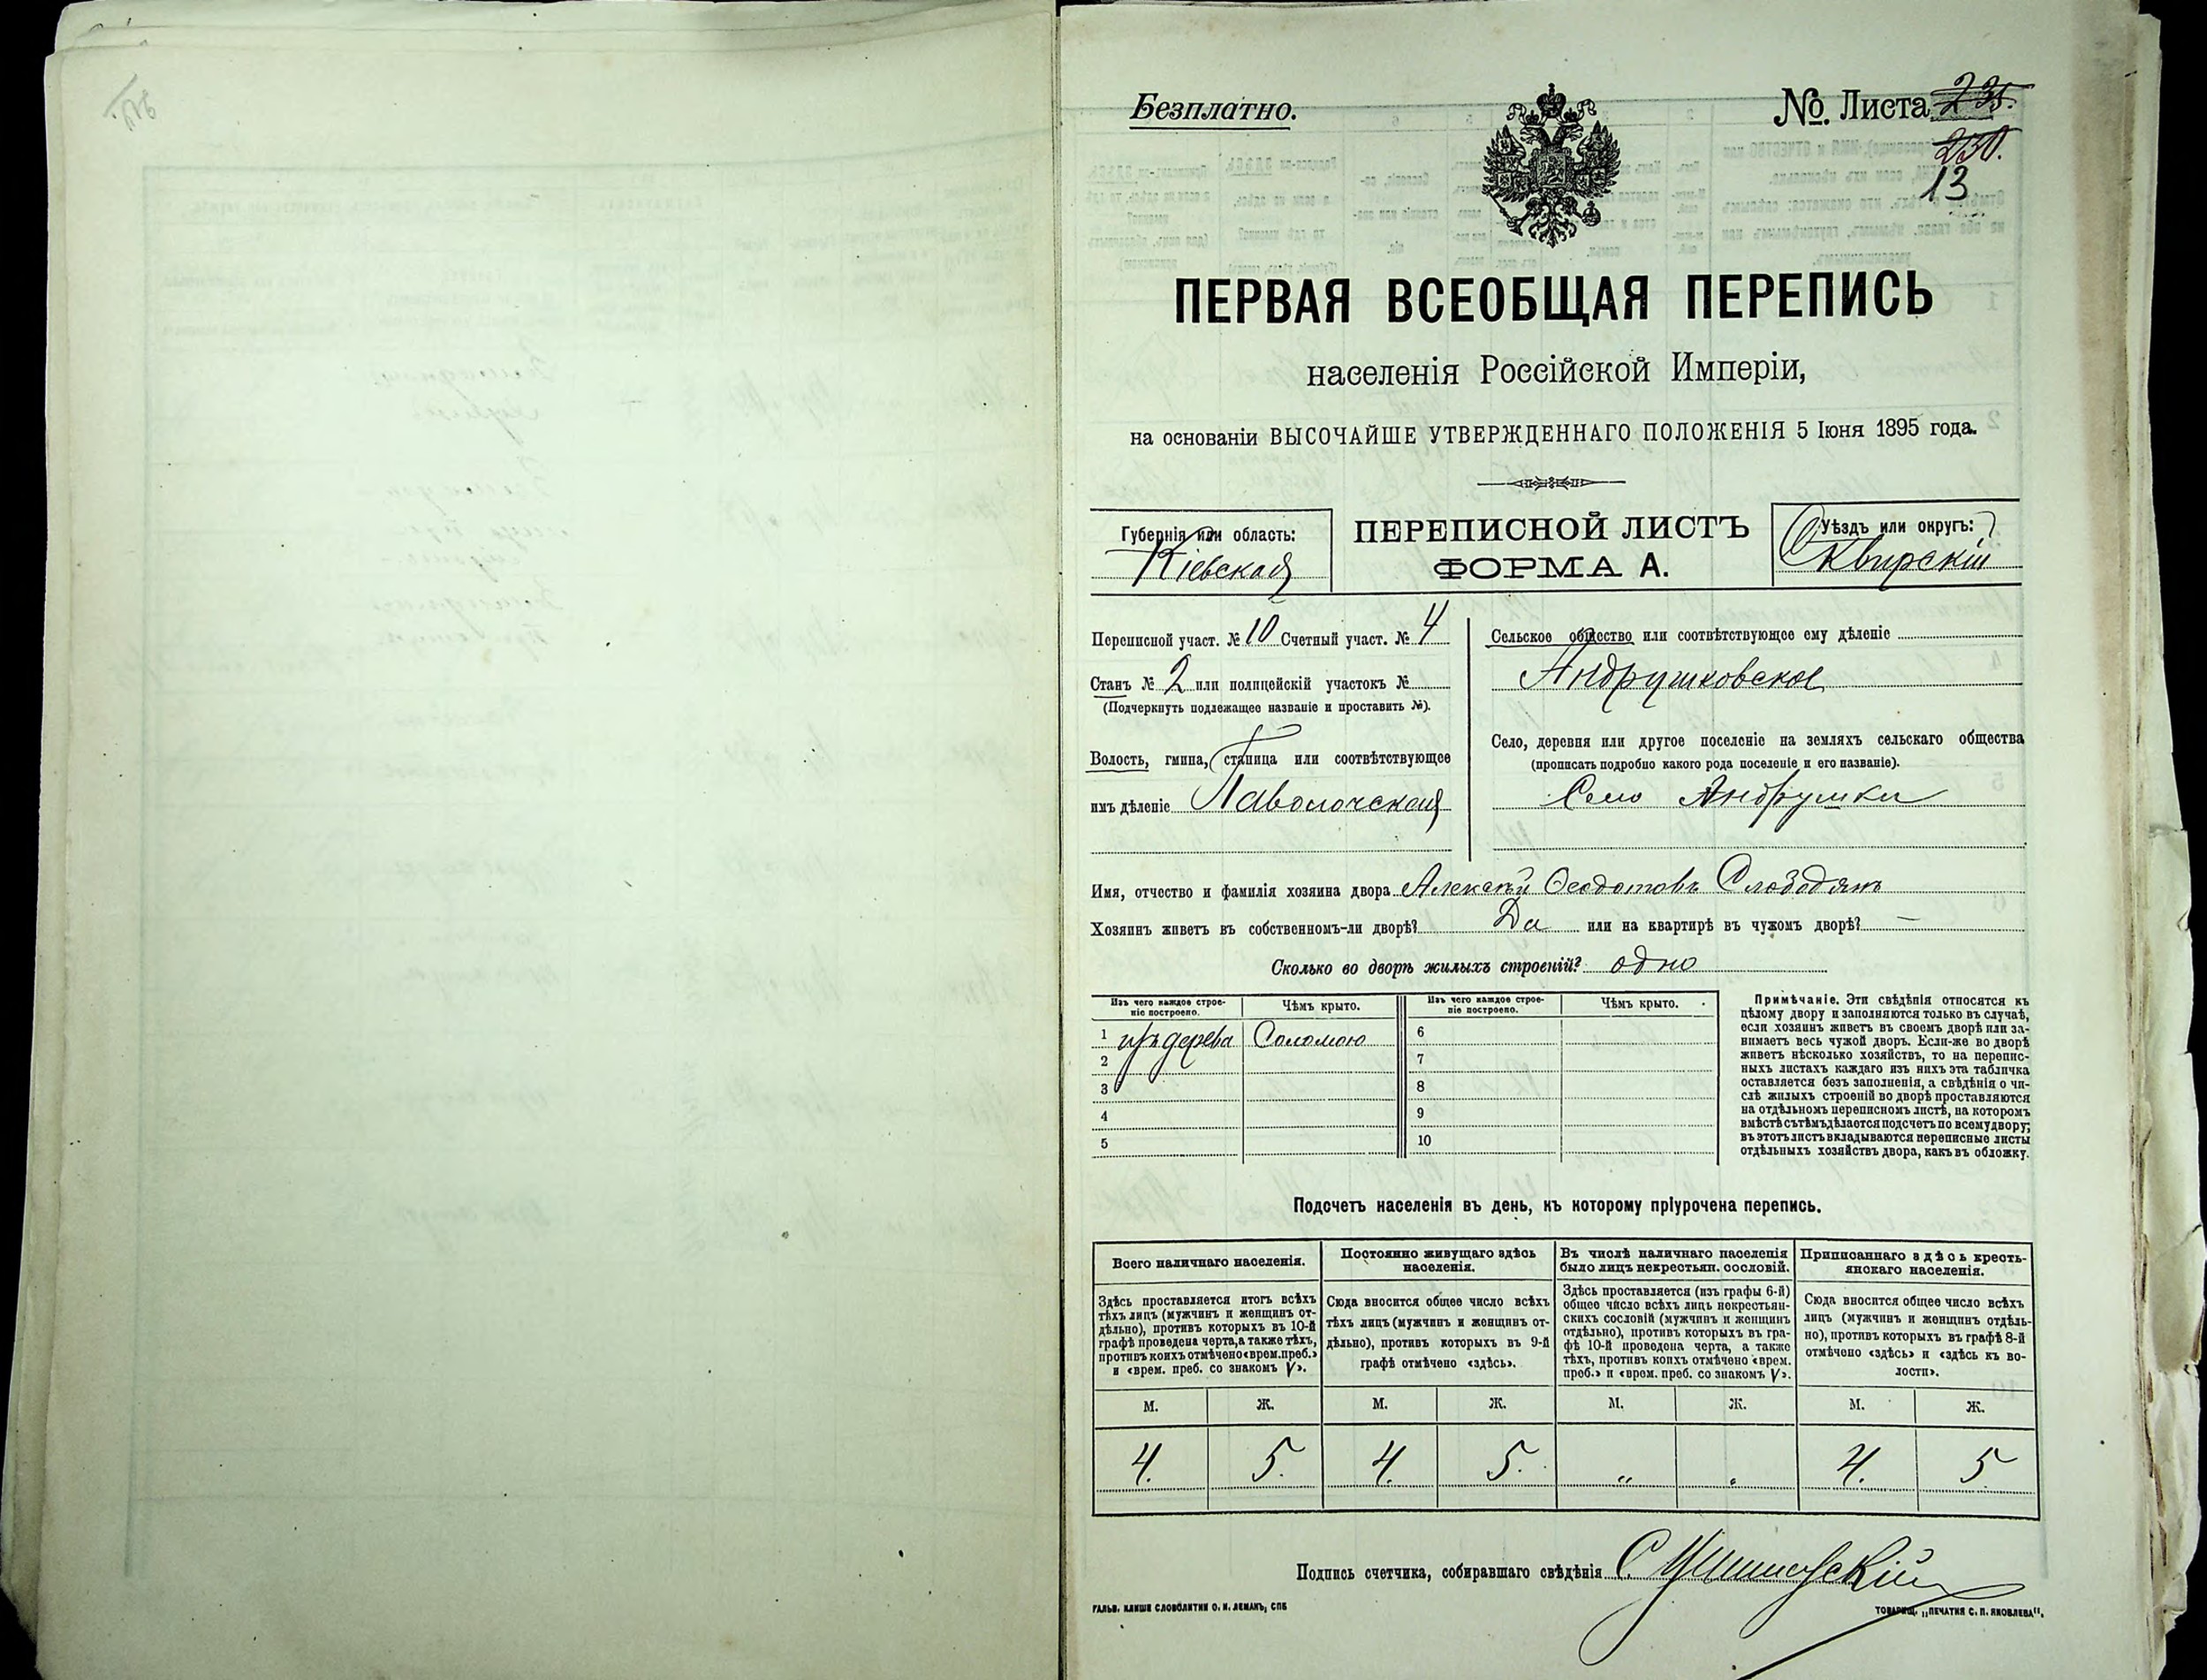 Безплатно.
№. Листа 235.
250.
13
ПЕРВАЯ ВСЕОБЩАЯ ПЕРЕПИСЬ
населенія Россійской Имперіи,
на основаніи ВЫСОЧАЙШЕ УТВЕРЖДЕННАГО ПОЛОЖЕНІЯ 5 Іюня 1895 года.
Губернія или область:
Кіевская
ПЕРЕПИСНОЙ ЛИСТЪ
ФОРМА А.
Уѣздъ или округъ:
Сквирскій
Переписной участ. № 10 Счетный участ. № 4
Станъ № 2 или полицейскій участокъ №
(Подчеркнуть подлежащее названіе и проставить №).
Волость, гмина, станица или соотвѣтствующее
имъ дѣленіе Паволочская
Сельское общество или соотвѣтствующее ему дѣленіе
Андрушковское
Село, деревня или другое поселеніе на земляхъ сельскаго общества
(прописать подробно какого рода поселеніе и его названіе).
Село Андрушки
Имя, отчество и фамилія хозяина двора Алексѣй Ѳеодотовъ Слободянъ
Хозяинъ живетъ въ собственномъ-ли дворѣ? Да или на квартирѣ въ чужомъ дворѣ? —
Сколько во дворѣ жилыхъ строеній? одно
Изъ чего каждое строе-
ніе построено.
Чѣмъ крыто.
Изъ чего каждое строе-
ніе построено.
Чѣмъ крыто.
1 изъ дерева Соломою 6
2 7
3 8
4 9
5 10
Примѣчаніе. Эти свѣдѣнія относятся къ
цѣлому двору и заполняются только въ случаѣ,
если хозяинъ живетъ въ своемъ дворѣ или за-
нимаетъ весь чужой дворъ. Если-же во дворѣ
живетъ нѣсколько хозяйствъ, то на перепис-
ныхъ листахъ каждаго изъ нихъ эта табличка
оставляется безъ заполненія, а свѣдѣнія о чи-
слѣ жилыхъ строеній во дворѣ проставляются
на отдѣльномъ переписномъ листѣ, на которомъ
вмѣстѣ съ тѣмъ дѣлается подсчетъ по всему двору;
въ этотъ листъ вкладываются переписные листы
отдѣльныхъ хозяйствъ двора, какъ въ обложку.
Подсчетъ населенія въ день, къ которому пріурочена перепись.
Всего наличнаго населенія.
Здѣсь проставляется итогъ всѣхъ
тѣхъ лицъ (мужчинъ и женщинъ от-
дѣльно), противъ которыхъ въ 10-й
графѣ проведена черта, а также тѣхъ,
противъ коихъ отмѣчено «врем. преб.»
и «врем. преб. со знакомъ V».
Постоянно живущаго здѣсь
населенія.
Сюда вносится общее число всѣхъ
тѣхъ лицъ (мужчинъ и женщинъ от-
дѣльно), противъ которыхъ въ 9-й
графѣ отмѣчено «здѣсь».
Въ числѣ наличнаго населенія
было лицъ некрестьян. сословій.
Здѣсь проставляется (изъ графы 6-й)
общее число всѣхъ лицъ некрестьян-
скихъ сословій (мужчинъ и женщинъ
отдѣльно), противъ которыхъ въ гра-
фѣ 10-й проведена черта, а также
тѣхъ, противъ коихъ отмѣчено «врем.
преб.» и «врем. преб. со знакомъ V».
Приписаннаго здѣсь кресть-
янскаго населенія.
Сюда вносится общее число всѣхъ
лицъ (мужчинъ и женщинъ отдѣль-
но), противъ которыхъ въ графѣ 8-й
отмѣчено «здѣсь» и «здѣсь къ во-
лости».
М. Ж. М. Ж. М. Ж. М. Ж.
4. 5. 4. 5. „ „ 4. 5
Подпись счетчика, собиравшаго свѣдѣнія С.
ГАЛЬВ. КЛИШЕ СЛОВОЛИТНИ О. И. ЛЕМАНЪ, СПБ
ТОВАРИЩ. „ПЕЧАТНЯ С. П. ЯКОВЛЕВА“.